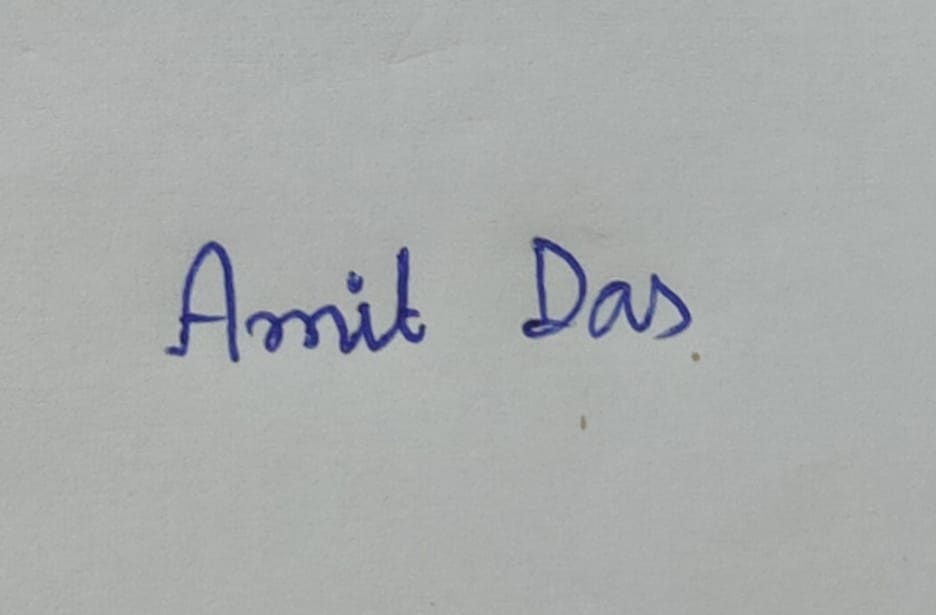 Amit Das